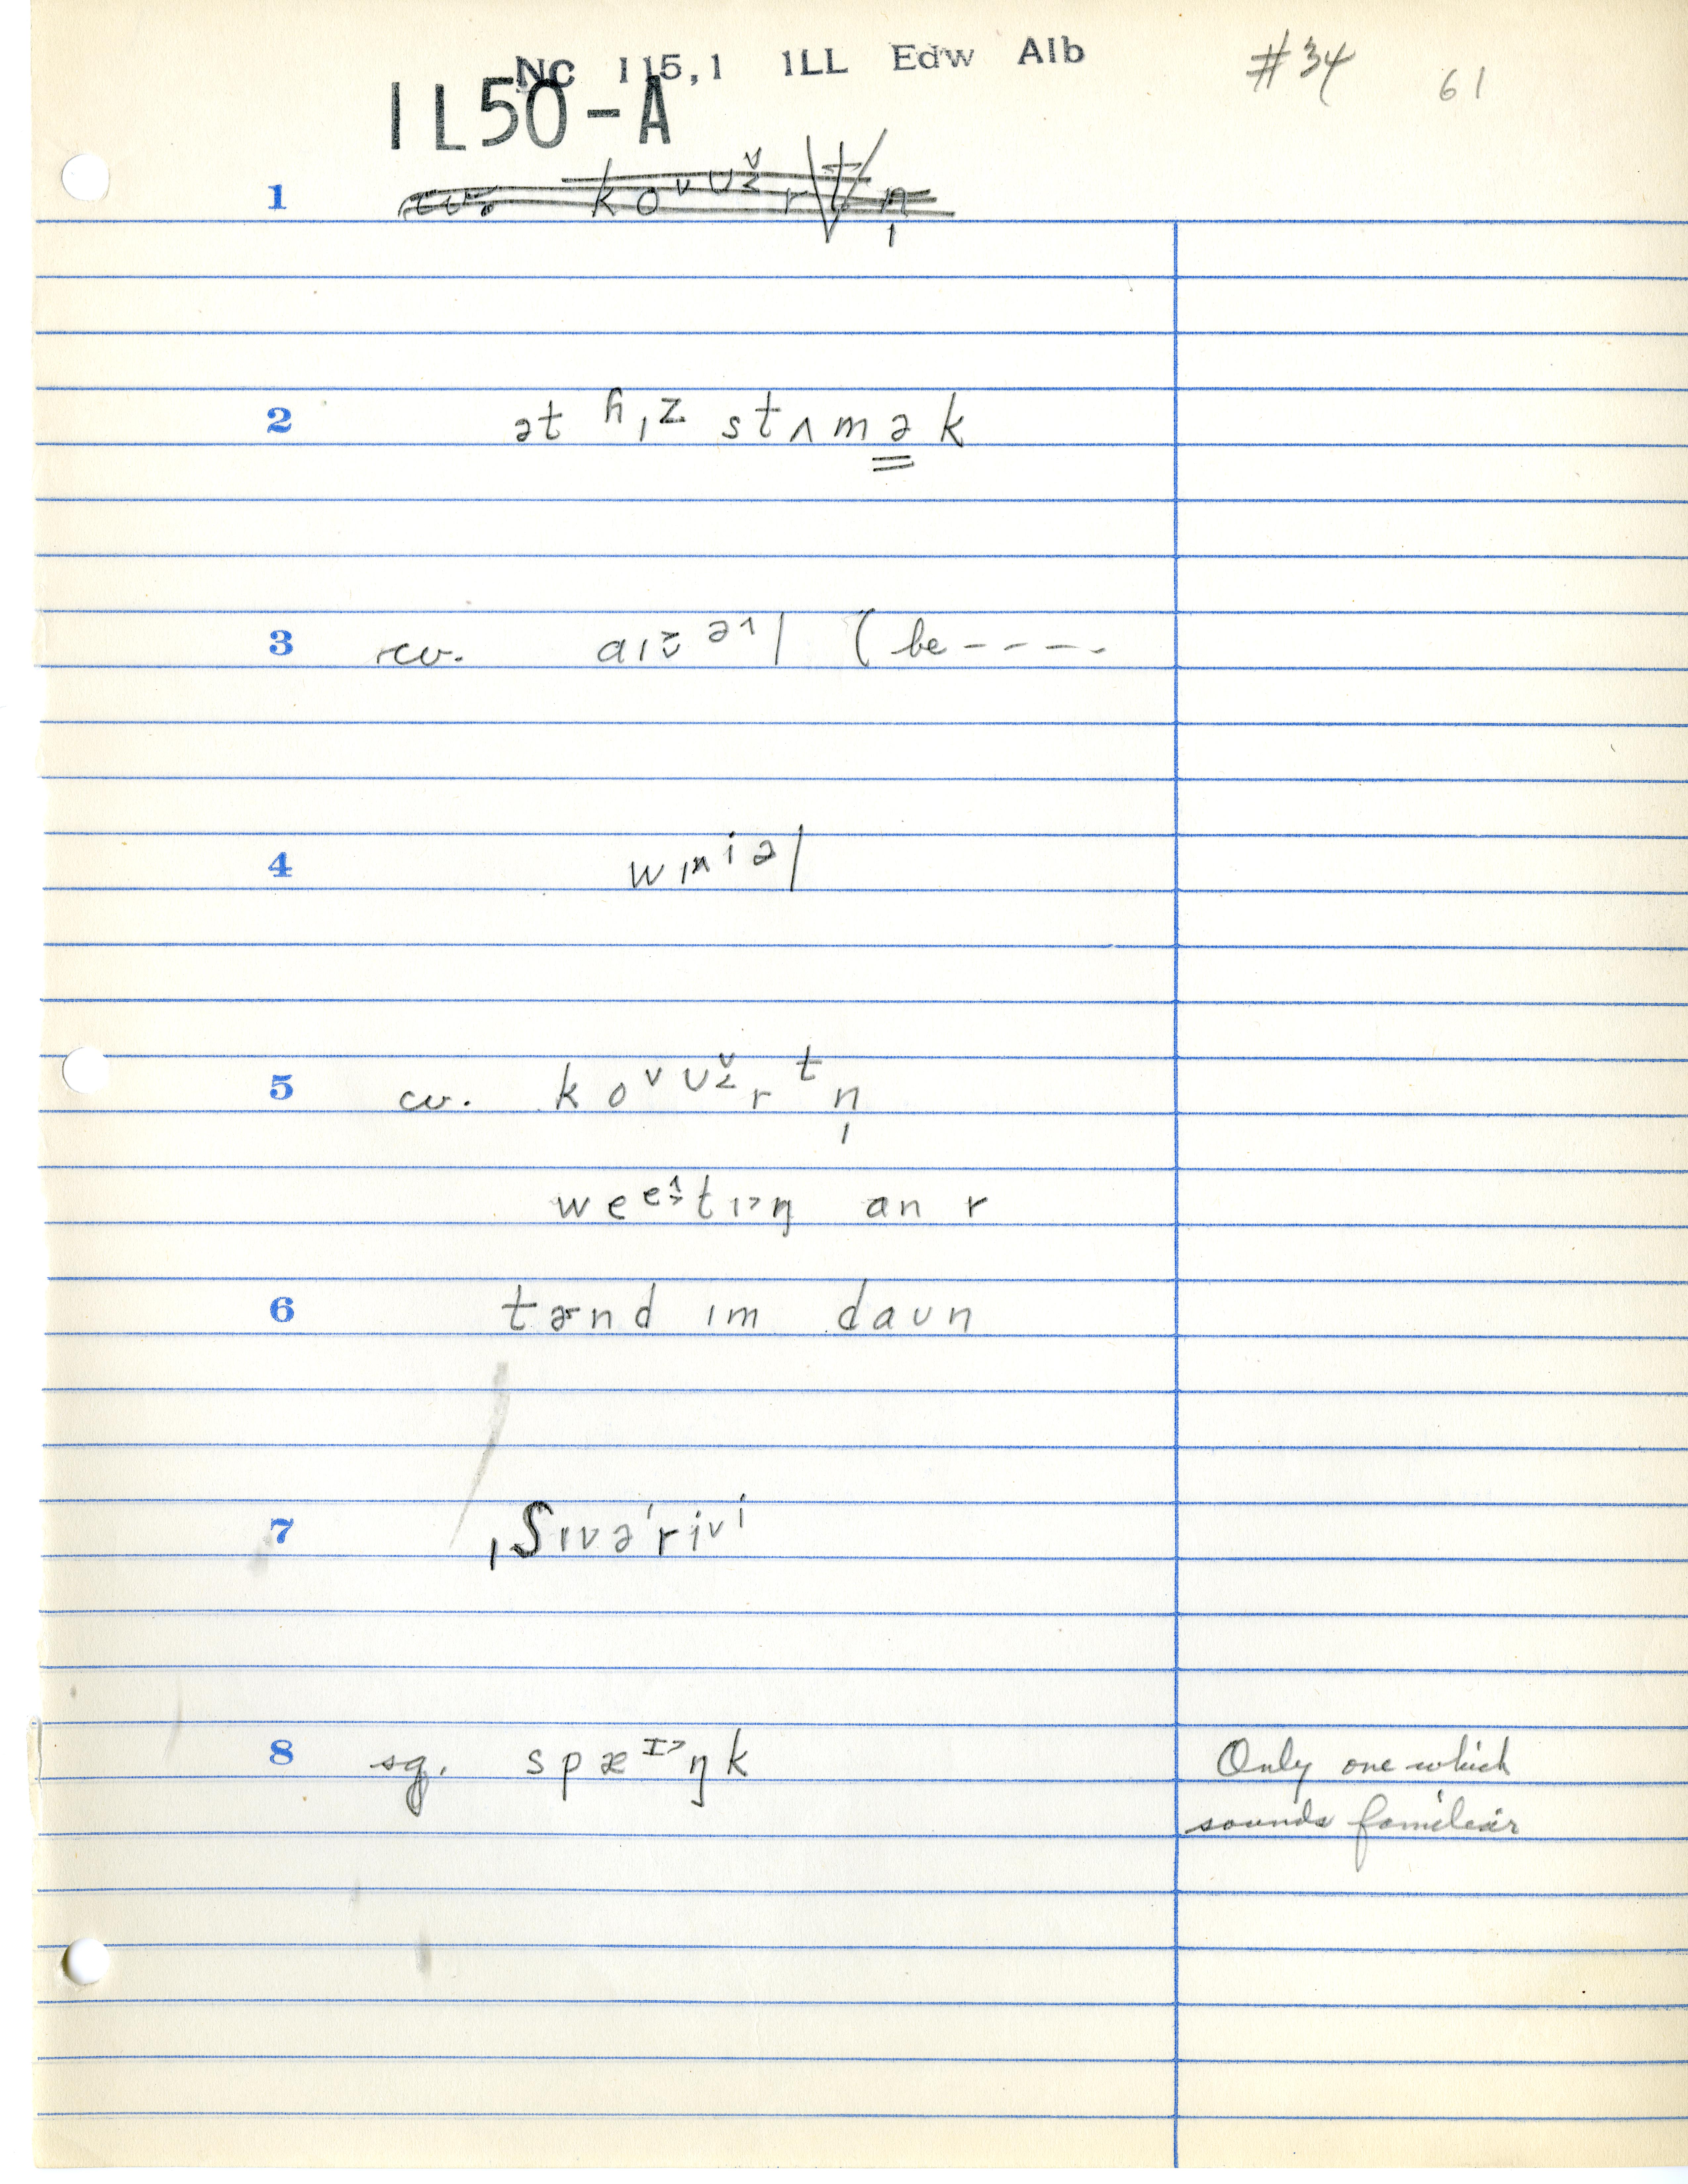 NC 115,1 1LL Edw Alb #34 61
1L50-A
1 cv. k o ᵛ ᴜ ž r t n̩
2 ət ɦɪz stʌmək
3 rcv. aɪ ə l (be - - - -
4 wɪnɪəl
5 cv. k o ᵛ ᴜ ž r t n̩
weeᶦtɪ˃ŋ an r
6 tɚnd ɪm daʊn
7 ˌʃɪvəˈriᵛi
8 sg. spæᶦ˃ŋk Only one which
sounds familiar